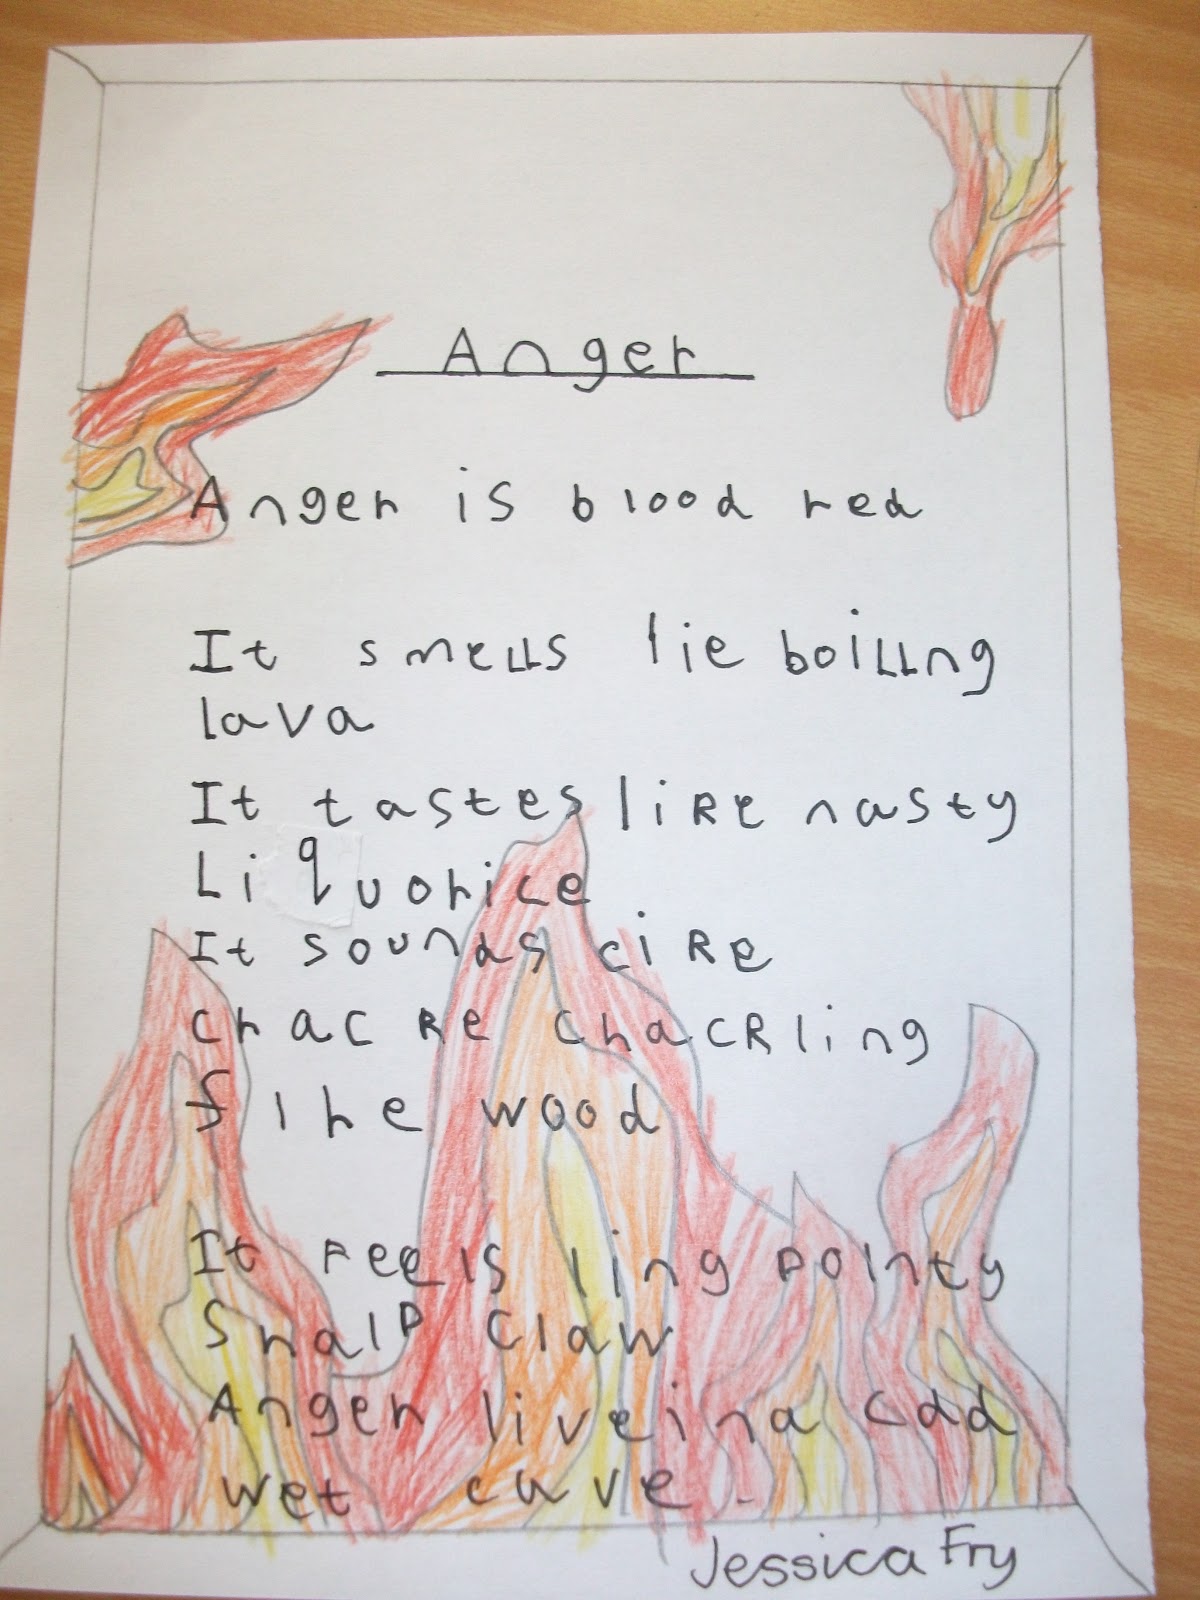 Anger
Anger is blood red
It smells lie boillng
lava
It tastes like nasty
Liquorice
It sounds cike
chacke chackling
fire wood
It feels ling pointy
Sharp Claw
Anger live in a cdd
wet cave.
Jessica Fry